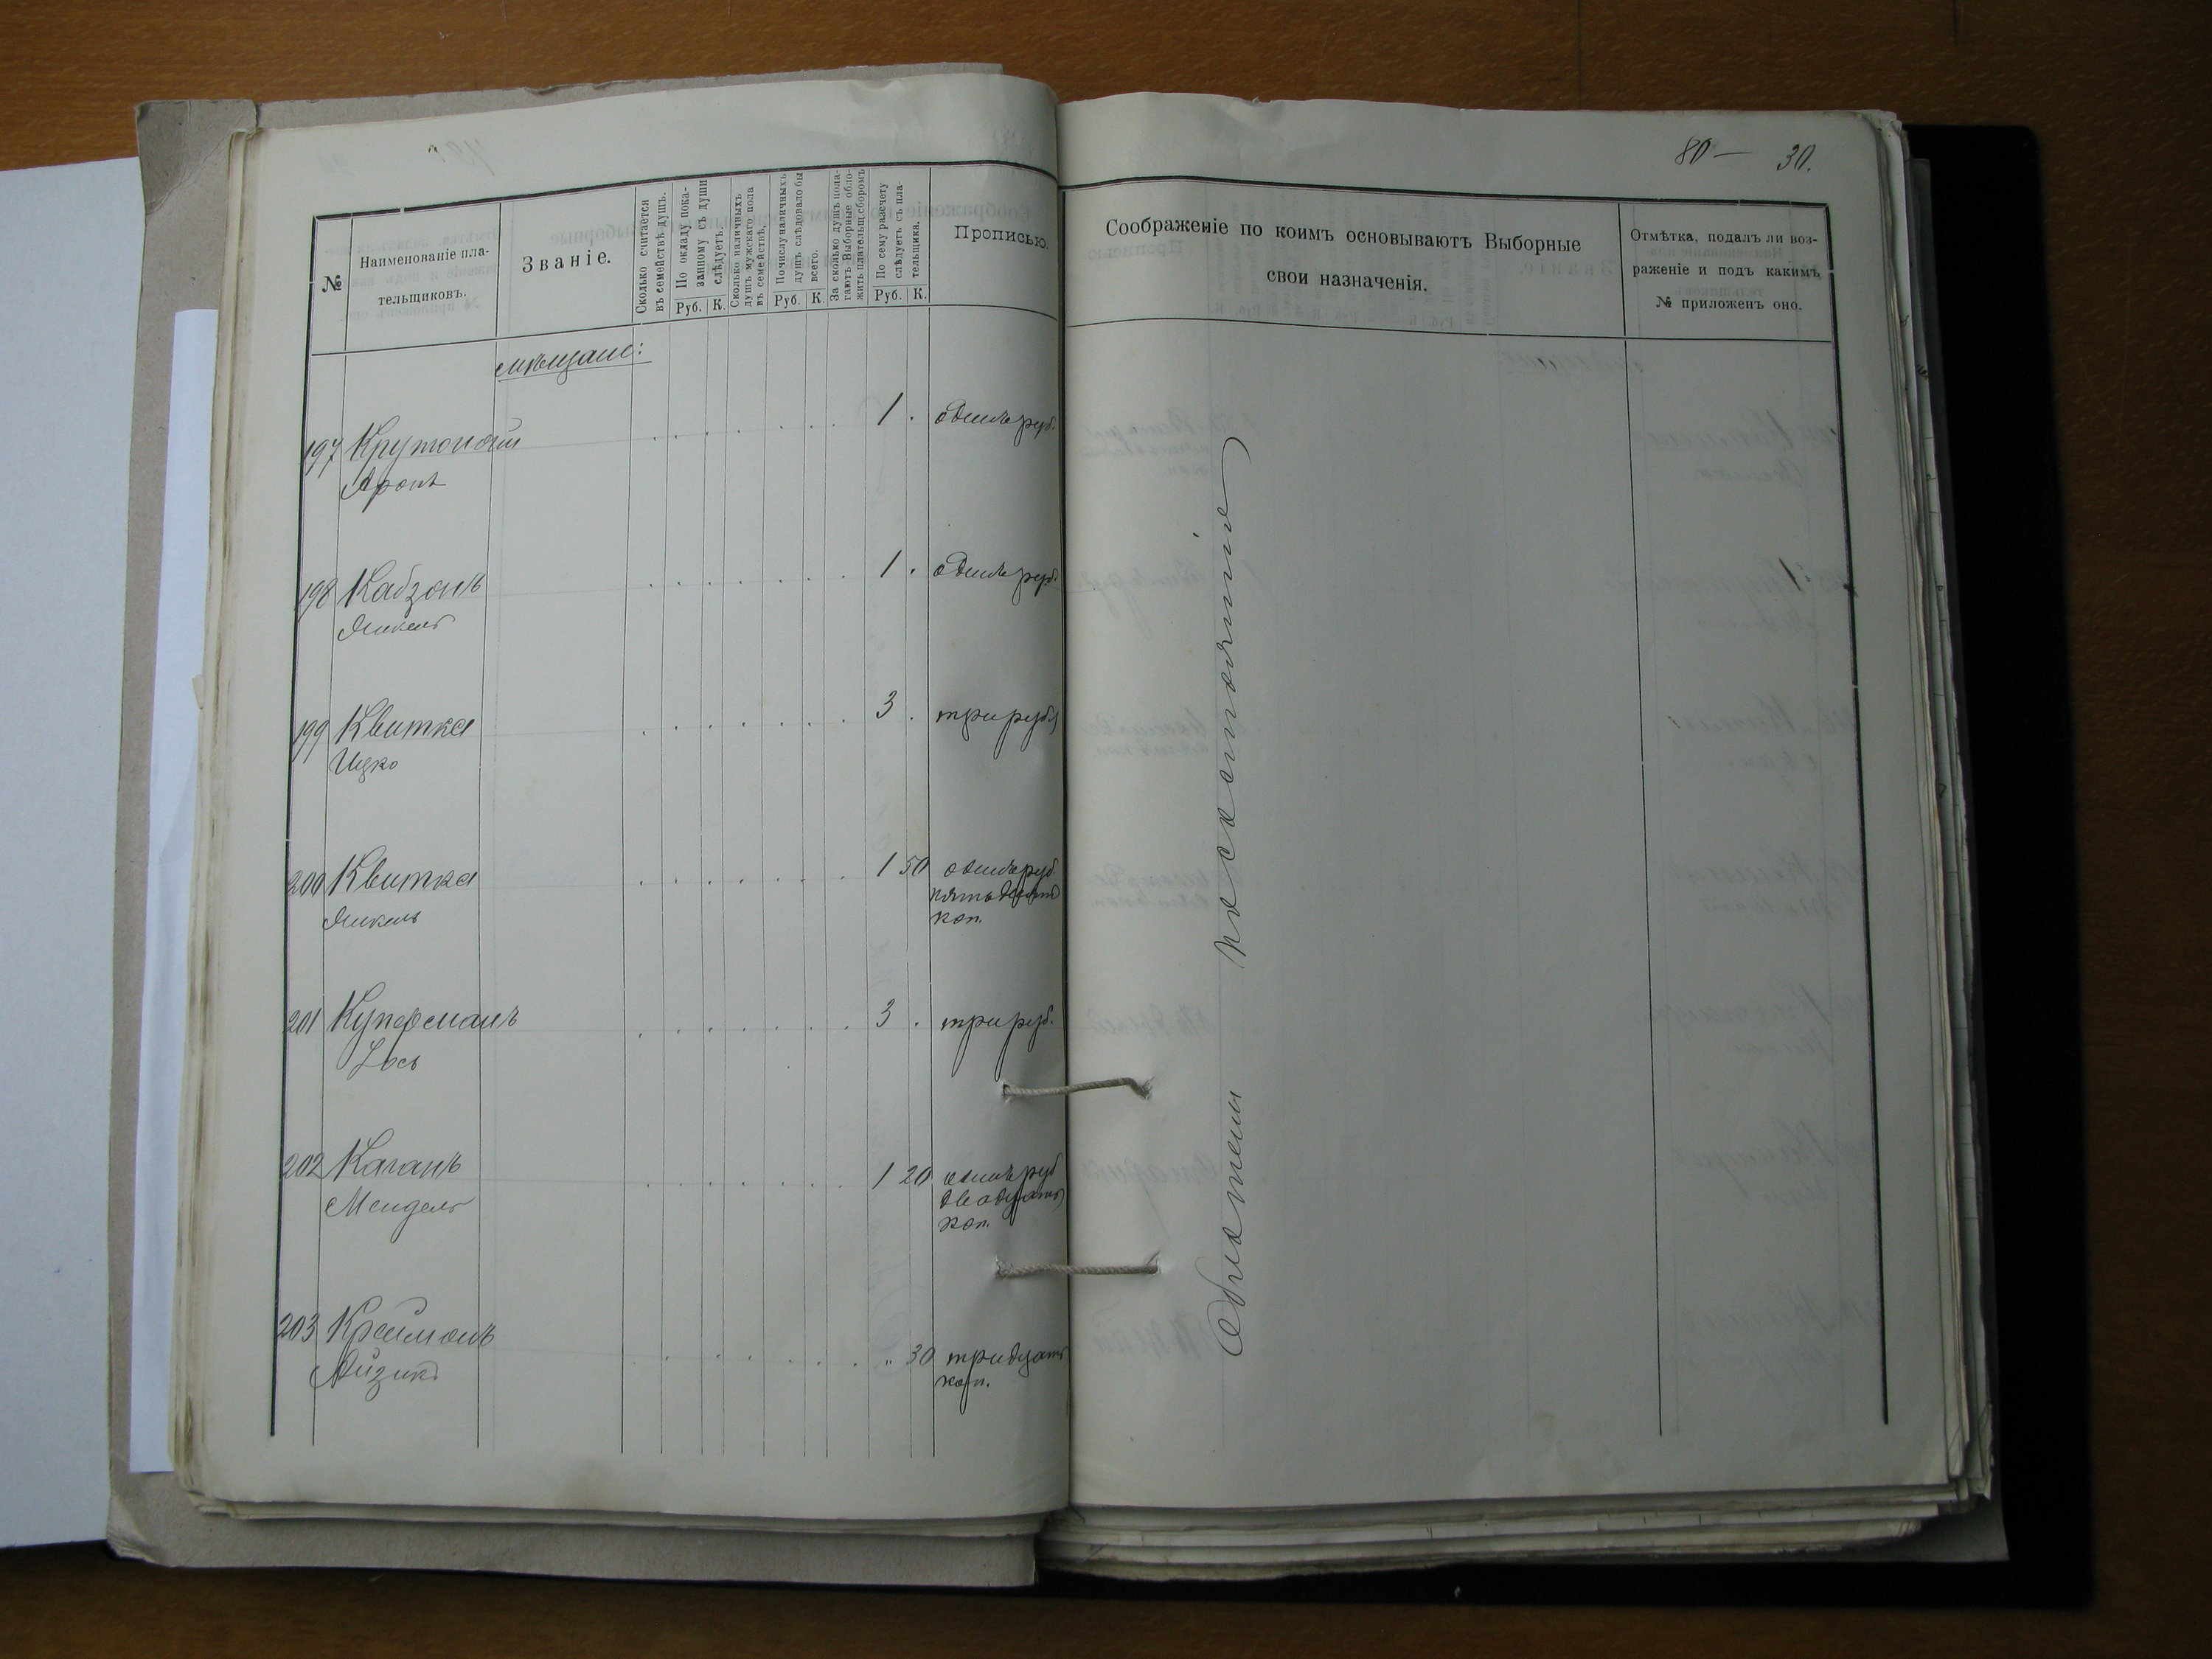 80 — 30.
№
Наименованіе пла-
тельщиковъ.
Званіе.
Сколько считается
въ семействѣ душъ.
По окладу пока-
занному съ души
слѣдуетъ.
Руб. К.
Сколько наличныхъ
душъ мужскаго пола
въ семействѣ.
По числу наличныхъ
душъ слѣдовало бы
всего.
Руб. К.
За сколько душъ пола-
гаютъ Выборные обло-
жить плательщ. сборомъ
По сему разсчету
слѣдуетъ съ пла-
тельщика.
Руб. К.
Прописью.
Соображеніе по коимъ основываютъ Выборные
свои назначенія.
Отмѣтка, подалъ ли воз-
раженіе и подъ какимъ
№ приложенъ оно.
мѣщане:
197 Крутоногій 1 . одинъ руб.
Аронъ
198 Кабзонъ 1 . одинъ руб.
Янкель
199 Квитка 3 . три руб
Ицко
200 Квитка 1 50 одинъ руб.
Янкель пятьдесятъ
коп.
201 Куперманъ 3 . три руб.
Іось
202 Каганъ 1 20 одинъ руб
Мендель двадцать
коп.
203 Крейманъ " 30 тридцать
Айзикъ коп.
по состоянію